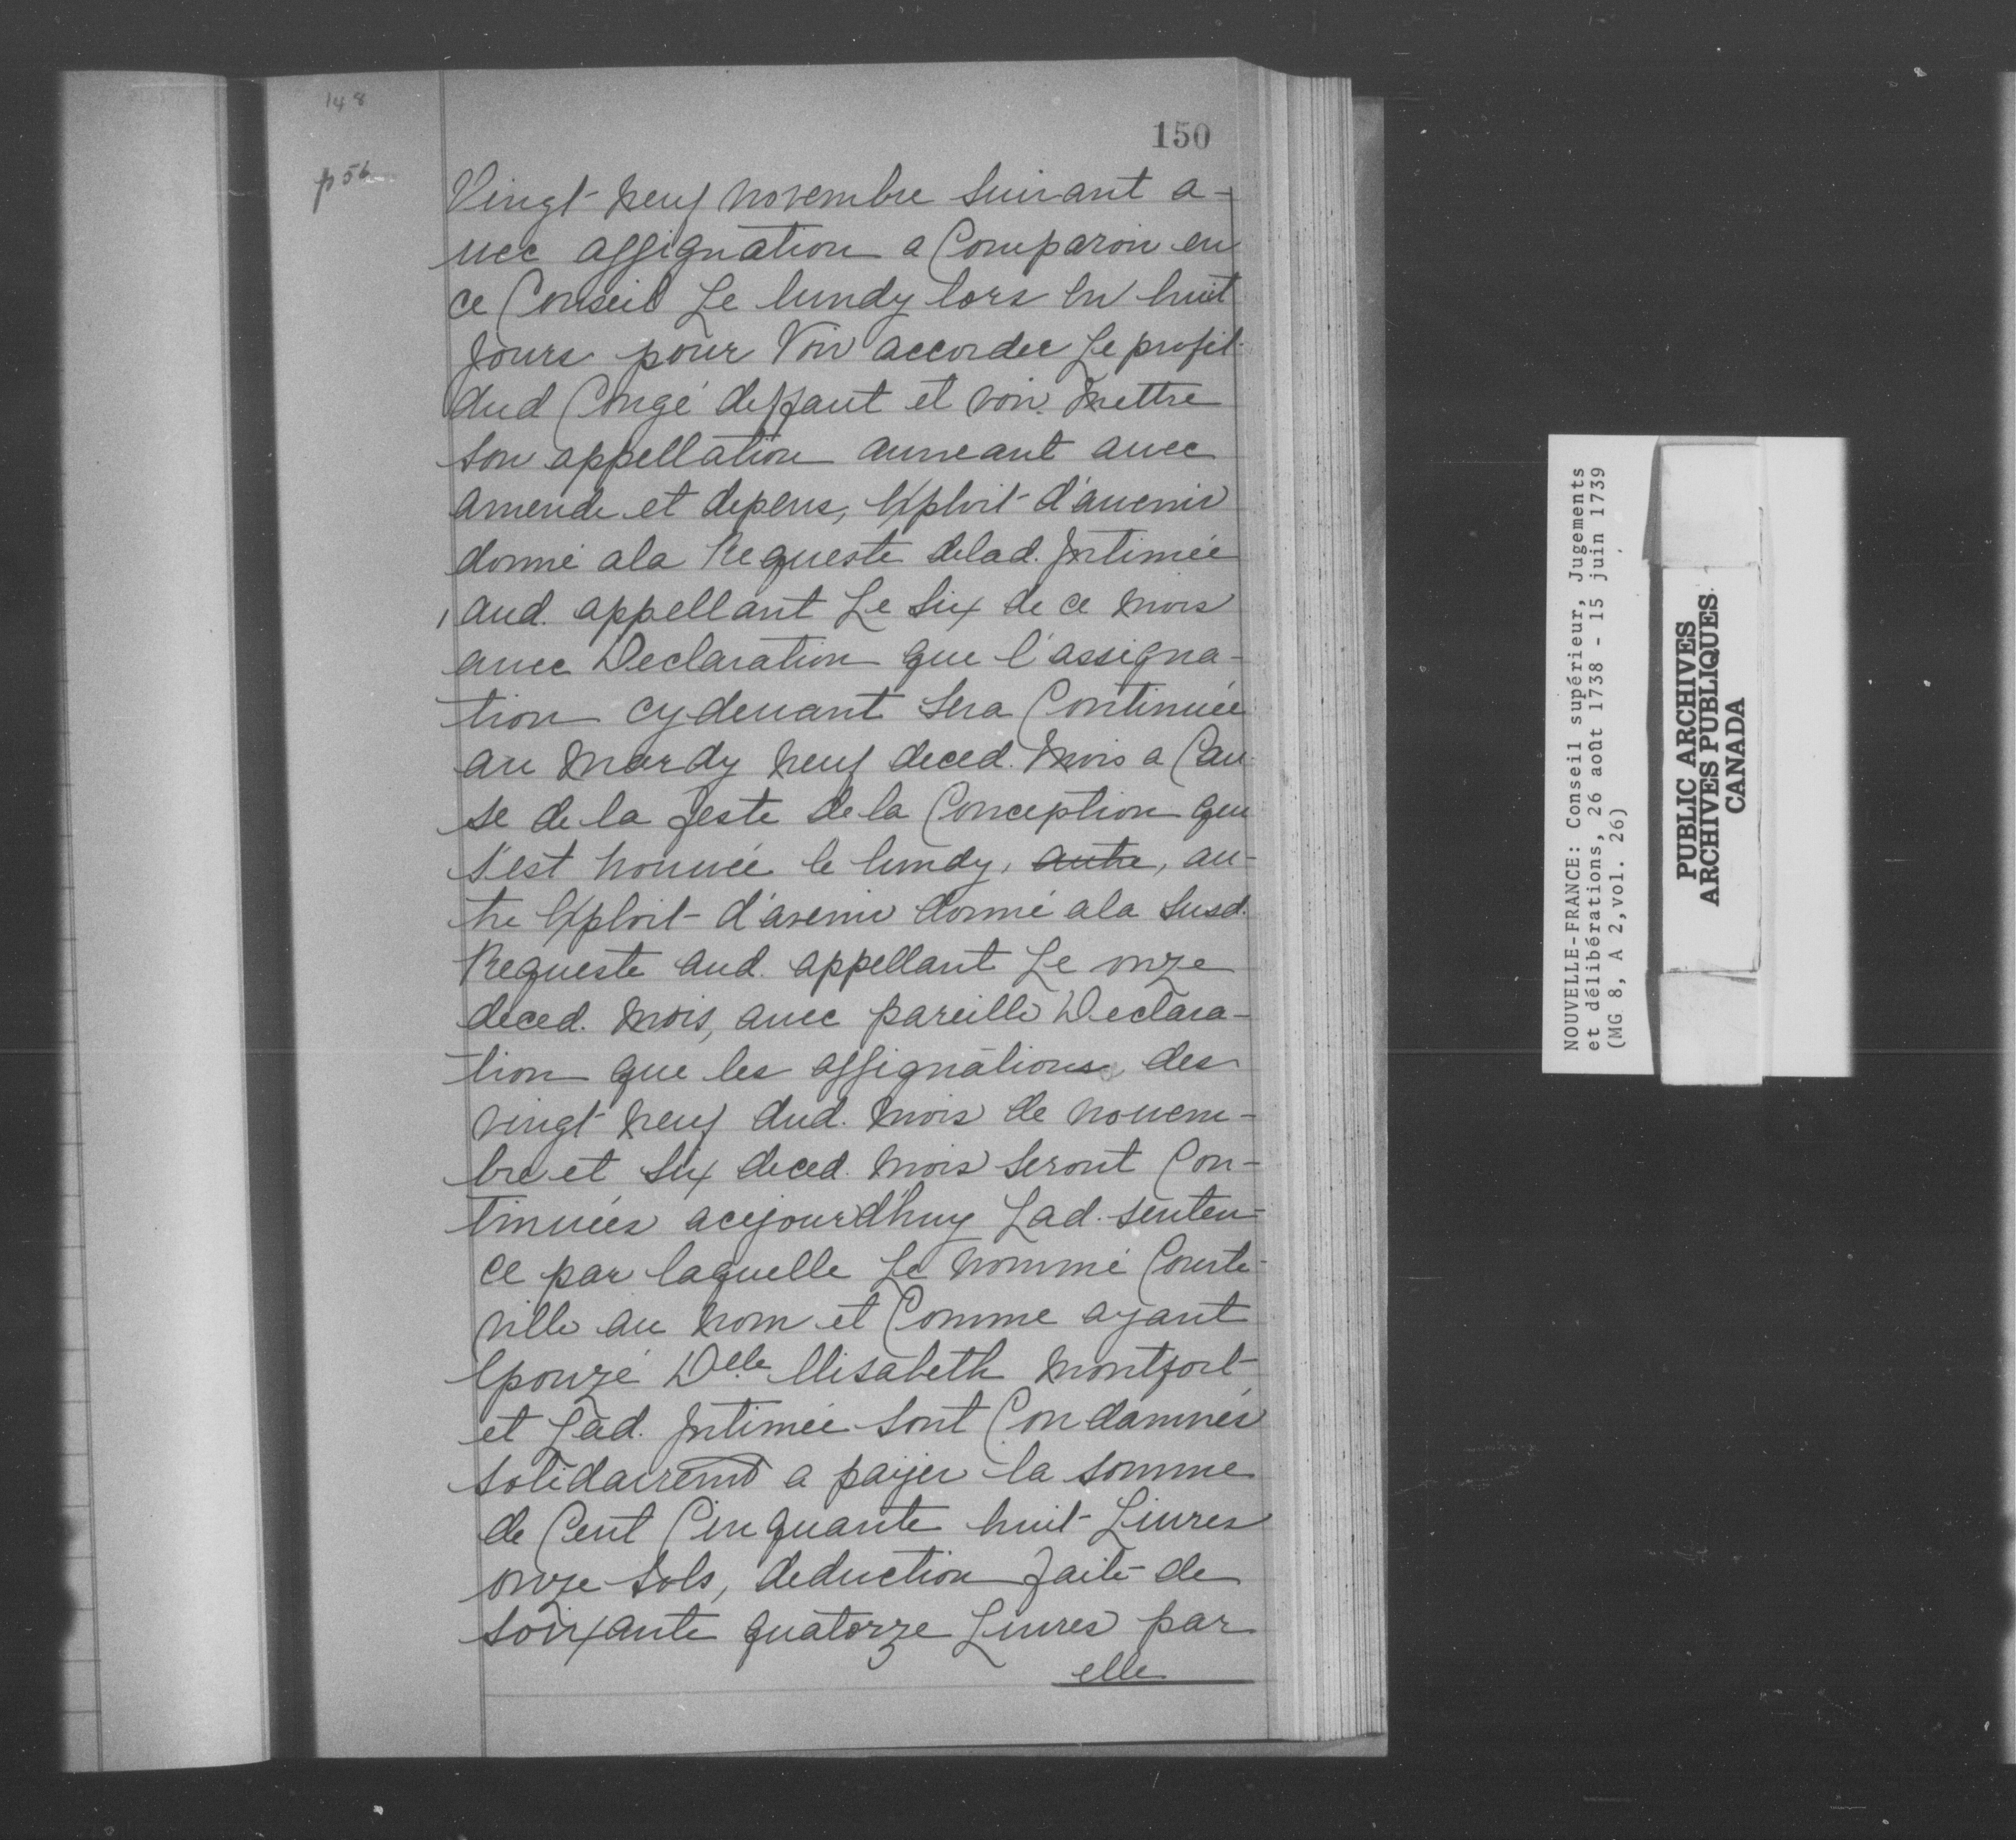 148
150
p 56
Vingt-neuf novembre suivant a-
uec assignation a Comparoir en
ce Conseil Le lundy lors en huit
Jours pour Voir accorder Le profit
dud Congé deffaut et voir mettre
son appellation auneant auec
amende et depens, Exploit d'auenir
donné ala Requeste delad. Intimée
aud. appellant Le Six de ce mois
auec Declaration que l'assigna-
tion cydeuant sera Continuée
au mardy neuf deced. mois a Cau-
se de la feste de la Conception qui
s'est trouuée le lundy, autre, au-
tre Exploit d'avenir donné ala susd.
Requeste aud. appellant Le onze
deced. mois, auec pareille Declara-
tion que les assignations des
vingt neuf dud. mois de nouem-
bre et six deced. mois seront Con-
tinuées acejourdhuy Lad. senten-
ce par laquelle Le nommé Courte-
ville au nom et Comme ayant
Epouzé Delle Elisabeth Montfort
et Lad. Intimée sont Condamnés
solidairemt a payer la somme
de Cent Cinquante huit Liures
onze sols, deduction faite de
soixante quatorze Liures par
elle
NOUVELLE-FRANCE: Conseil supérieur, Jugements
et délibérations, 26 août 1738 - 15 juin 1739
(MG 8, A 2,vol. 26)
PUBLIC ARCHIVES
ARCHIVES PUBLIQUES
CANADA